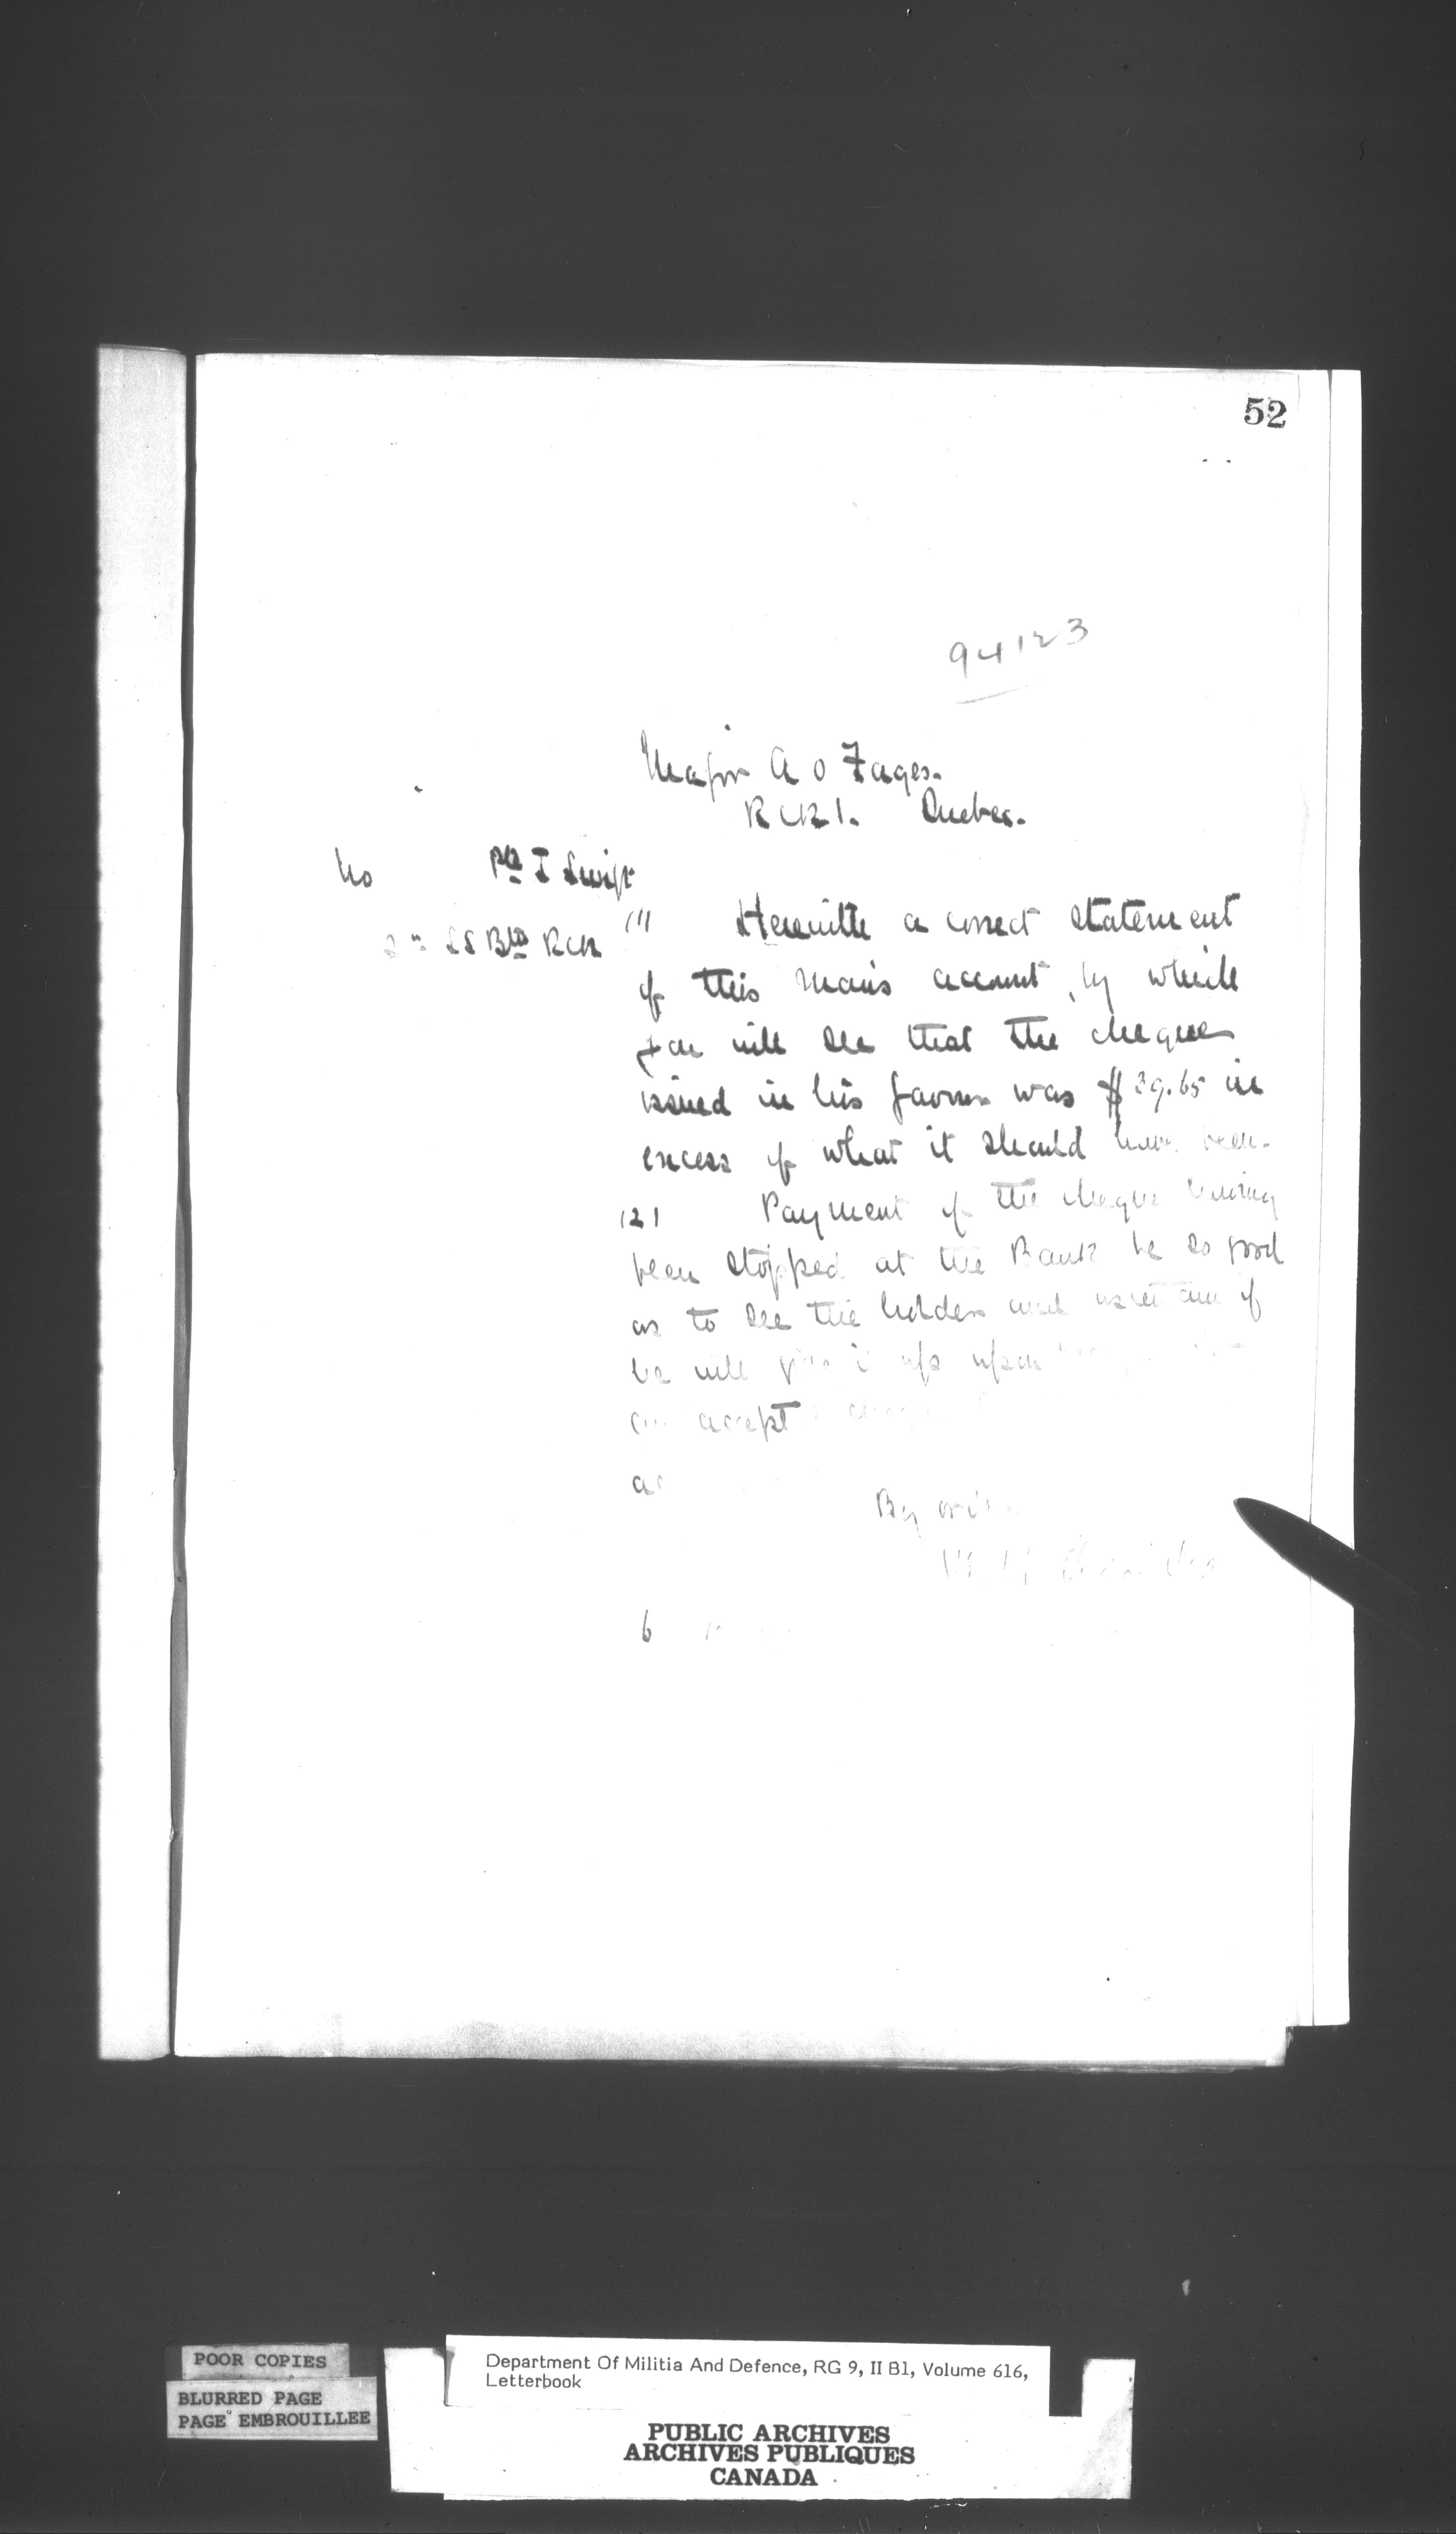 52
94123
Major A O Fages.
RCRI. Quebec.
No Pte T Swift
2nd SS Btn RCR
(1) Herewith a correct statement
of this man's account, by which
you will see that the cheque
issued in his favour was $39.65 in
excess of what it should have been.
(2) Payment of the cheque having
been stopped at the Bank be so good
as to see the holder and ascertain if
he will give it up upon
accept
By order
POOR COPIES
BLURRED PAGE
PAGE EMBROUILLEE
Department Of Militia And Defence, RG 9, II B1, Volume 616,
Letterbook
PUBLIC ARCHIVES
ARCHIVES PUBLIQUES
CANADA